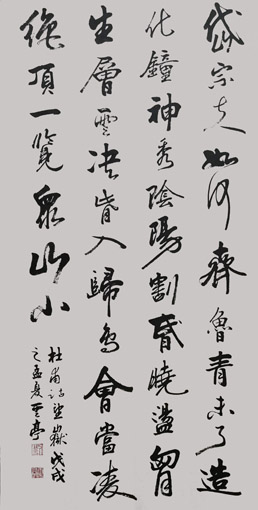 岱宗夫如何齊魯青未了造
化鐘神秀陰陽割昏曉盪胷
生層雲决眥入歸鳥會當凌
絶頂一覽眾山小
杜甫詩望嶽戊戌
之孟夏雲亭